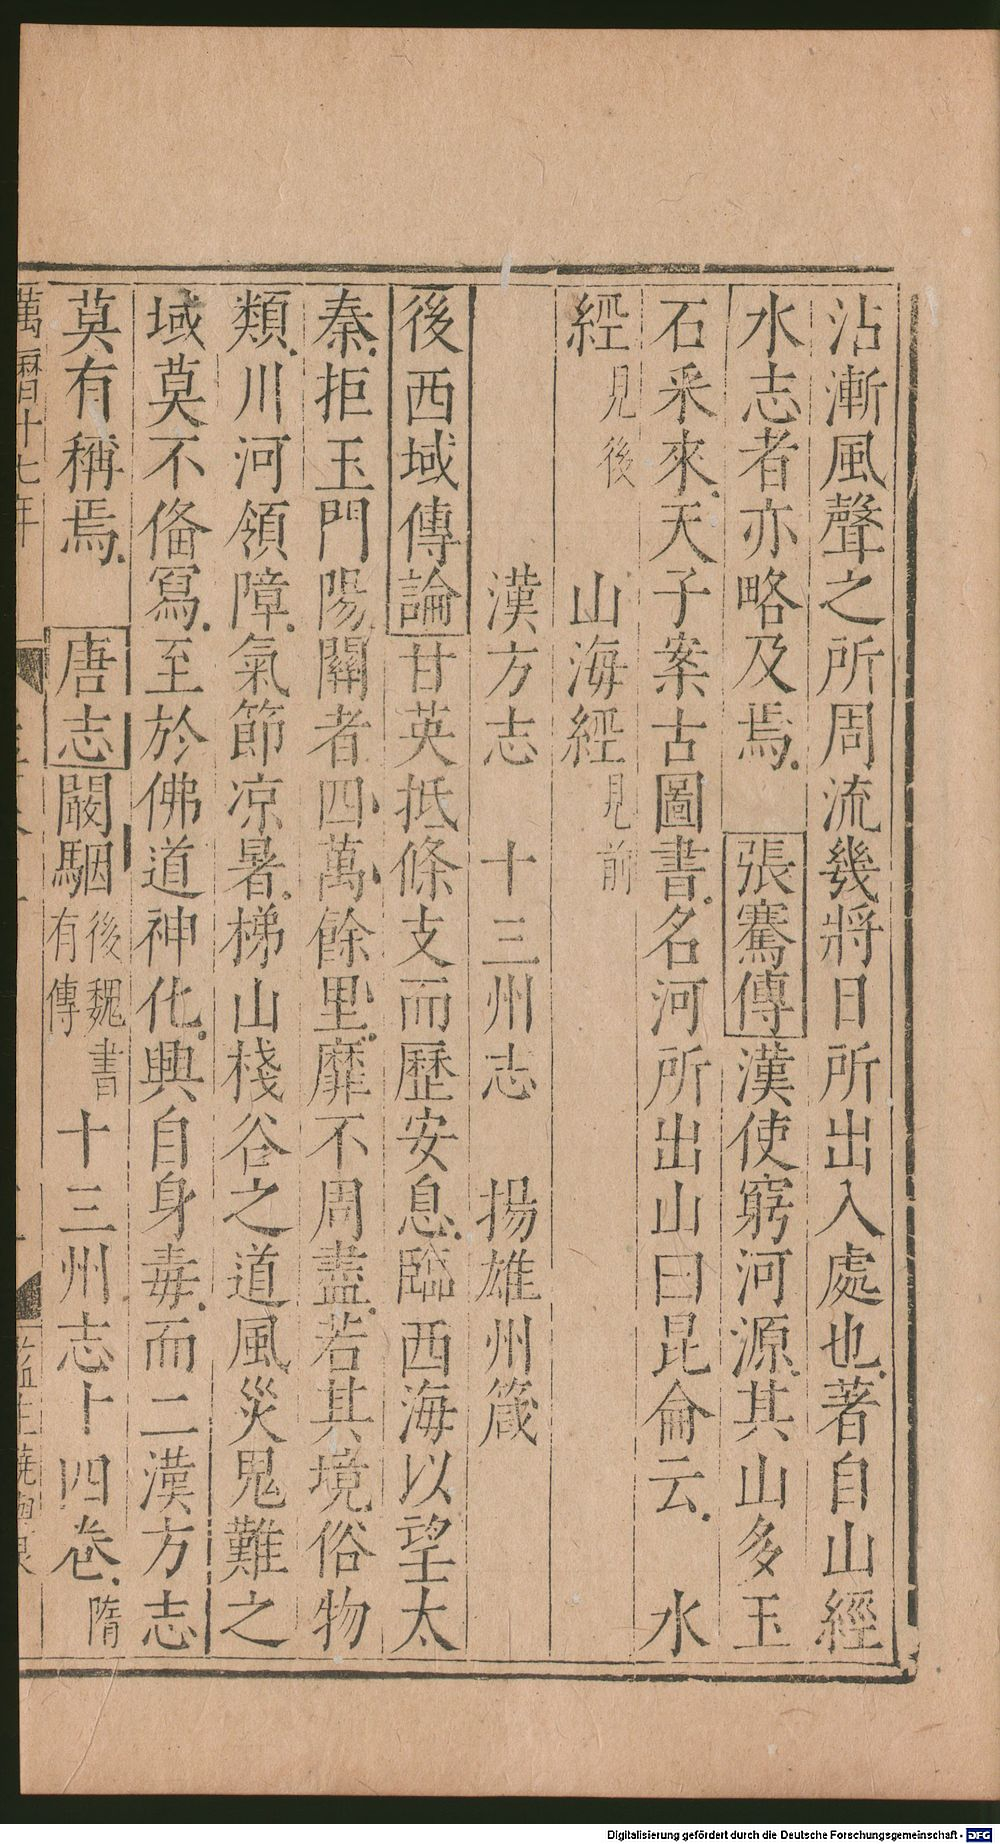 沾漸風聲之所周流幾將日所出入處也著自山經
水志者亦略及焉　張騫傳漢使窮河源其山多玉
石采來天子案古圖書名河所出山曰昆侖云　水
經見後　山海經見前
漢方志　十三州志　揚雄州箴
後西域傳論甘英抵條支而歷安息臨西海以望太
秦拒玉門陽關者四萬餘里靡不周盡若其境俗物
類川河領障氣節凉暑梯山棧谷之道風災鬼難之
域莫不俻寫至於佛道神化興自身毒而二漢方志
莫有稱焉　唐志闞駰後魏書有傳十三州志十四卷隋
萬曆十七年
Digitalisierung gefördert durch die Deutsche Forschungsgemeinschaft - DFG